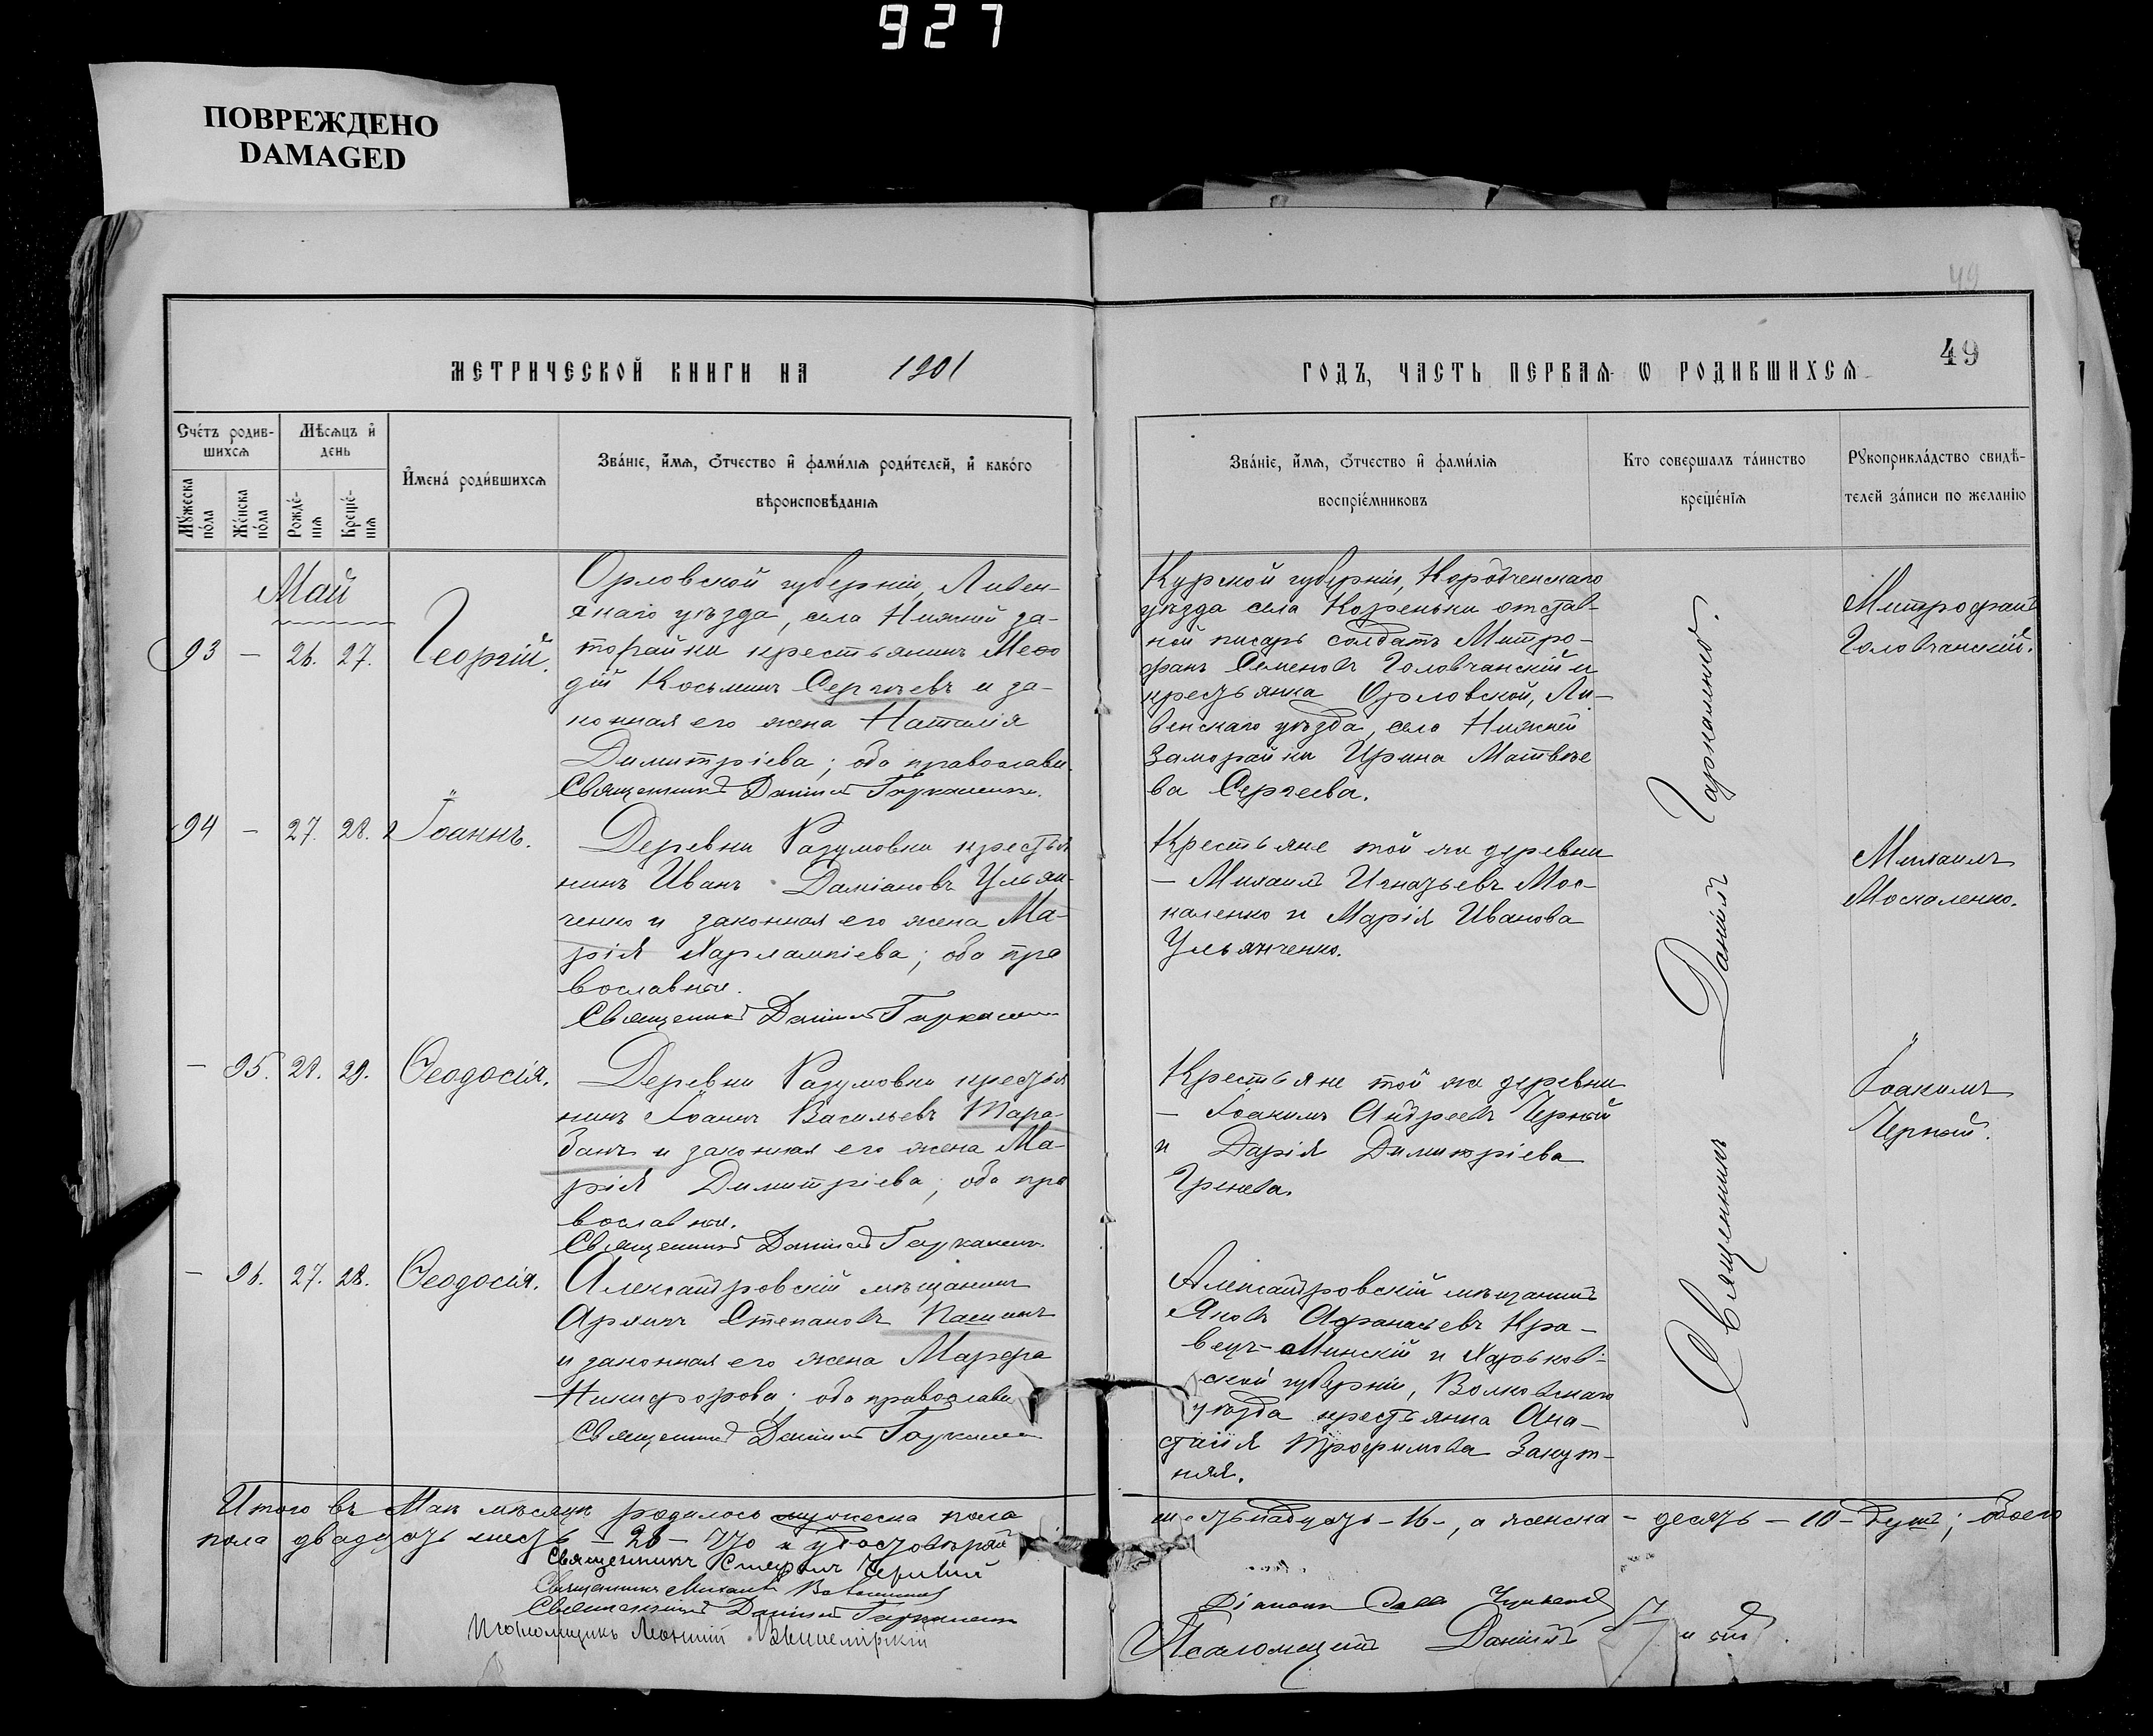 927
ПОВРЕЖДЕНО
DAMAGED
49
МЕТРИЧЕСКОЙ КНИГИ НА 1901
ГОДЪ, ЧАСТЬ ПЕРВАЯ Ѡ РОДИВШИХСѦ
49
Счéтъ родив-
шихсѧ
Мꙋ́жеска
пóла
Жéнска
пóла
Мѣ́сѧцъ и҆
день
Рождé-
нїѧ
Крещé-
нїѧ
И҆мена́ роди́вшихсѧ
Зва́нїе, и҆́мѧ, ѻ҆́тчество и҆ фами́лїѧ роди́телей, и҆ како́го
вѣроисповѣ́данїѧ
Зва́нїе, и҆́мѧ, ѻ҆́тчество и҆ фами́лїѧ
воспрїе́мниковъ
Кто совершалъ та́инство
креще́нїѧ
Рꙋкоприкла́дство свидѣ́-
телей за́писи по жела́нїю
Май
93 — 26. 27. Георгій.
Орловской губерніи, Ливен-
скаго уѣзда, села Нижней За-
морайки крестьянинъ Меѳо
дій Косьминъ Сергѣевъ и за-
конная его жена Наталія
Димитріева; оба православн.
Священникъ Даніилъ Гаркаленко.
Курской губерніи, Корочанскаго
уѣзда села Кореньки отстав-
ной писарь солдатъ Митро-
фанъ Семеновъ Головчанскій и
крестьянка Орловской, Ли-
венскаго уѣзда, села Нижней
Заморайки Ирина Матвѣе
ва Сергеева.
Митрофанъ
Головчанскій.
94 — 27. 28. Іоаннъ.
Деревни Разумовки крестья
нинъ Иванъ Даміановъ Ульян-
ченко и законная его жена Ма-
рія Харлампіева; оба пра
вославные.
Священникъ Даніилъ Гаркаленко
Крестьяне той же деревни
— Михаилъ Игнатьевъ Мос-
каленко и Марія Иванова
Ульянченко.
Михаилъ
Москаленко.
— 95. 28. 29. Ѳеодосія.
Деревни Разумовки крестья
нинъ Іоаннъ Васильевъ Тара-
банъ и законная его жена Ма-
рія Димитріева; оба пра
вославные.
Священникъ Даніилъ Гаркаленко
Крестьяне той же деревни
— Іоакимъ Андреевъ Черный
и Дарія Димитріева
Іоакимъ
Черный.
— 96. 27. 28. Ѳеодосія.
Александровскій мѣщанинъ
Степановъ
и законная его жена Марфа
Никифорова; оба православн
Священникъ Даніилъ Гаркаленко
Александровскій мѣщанинъ
Яковъ Афанасьевъ Кра-
вецъ-Минскій и Харьков-
ской губерніи, Волковскаго
уѣзда крестьянка Ана-
стасія Трофимова Закут-
няя.
Священникъ Даніилъ Гаркаленко.
Итого въ Маѣ мѣсяцѣ родилось мужеска пола
шестьнадцать — 16 —, а женска — десять — 10 — душъ; обоего
пола двадцать шесть — 26 — Что и удостовѣряй
Священникъ Стефанъ
Священникъ Михаилъ
Священникъ Даніилъ Гаркаленко
Псаломщикъ
Діаконъ
Псаломщикъ Даніилъ